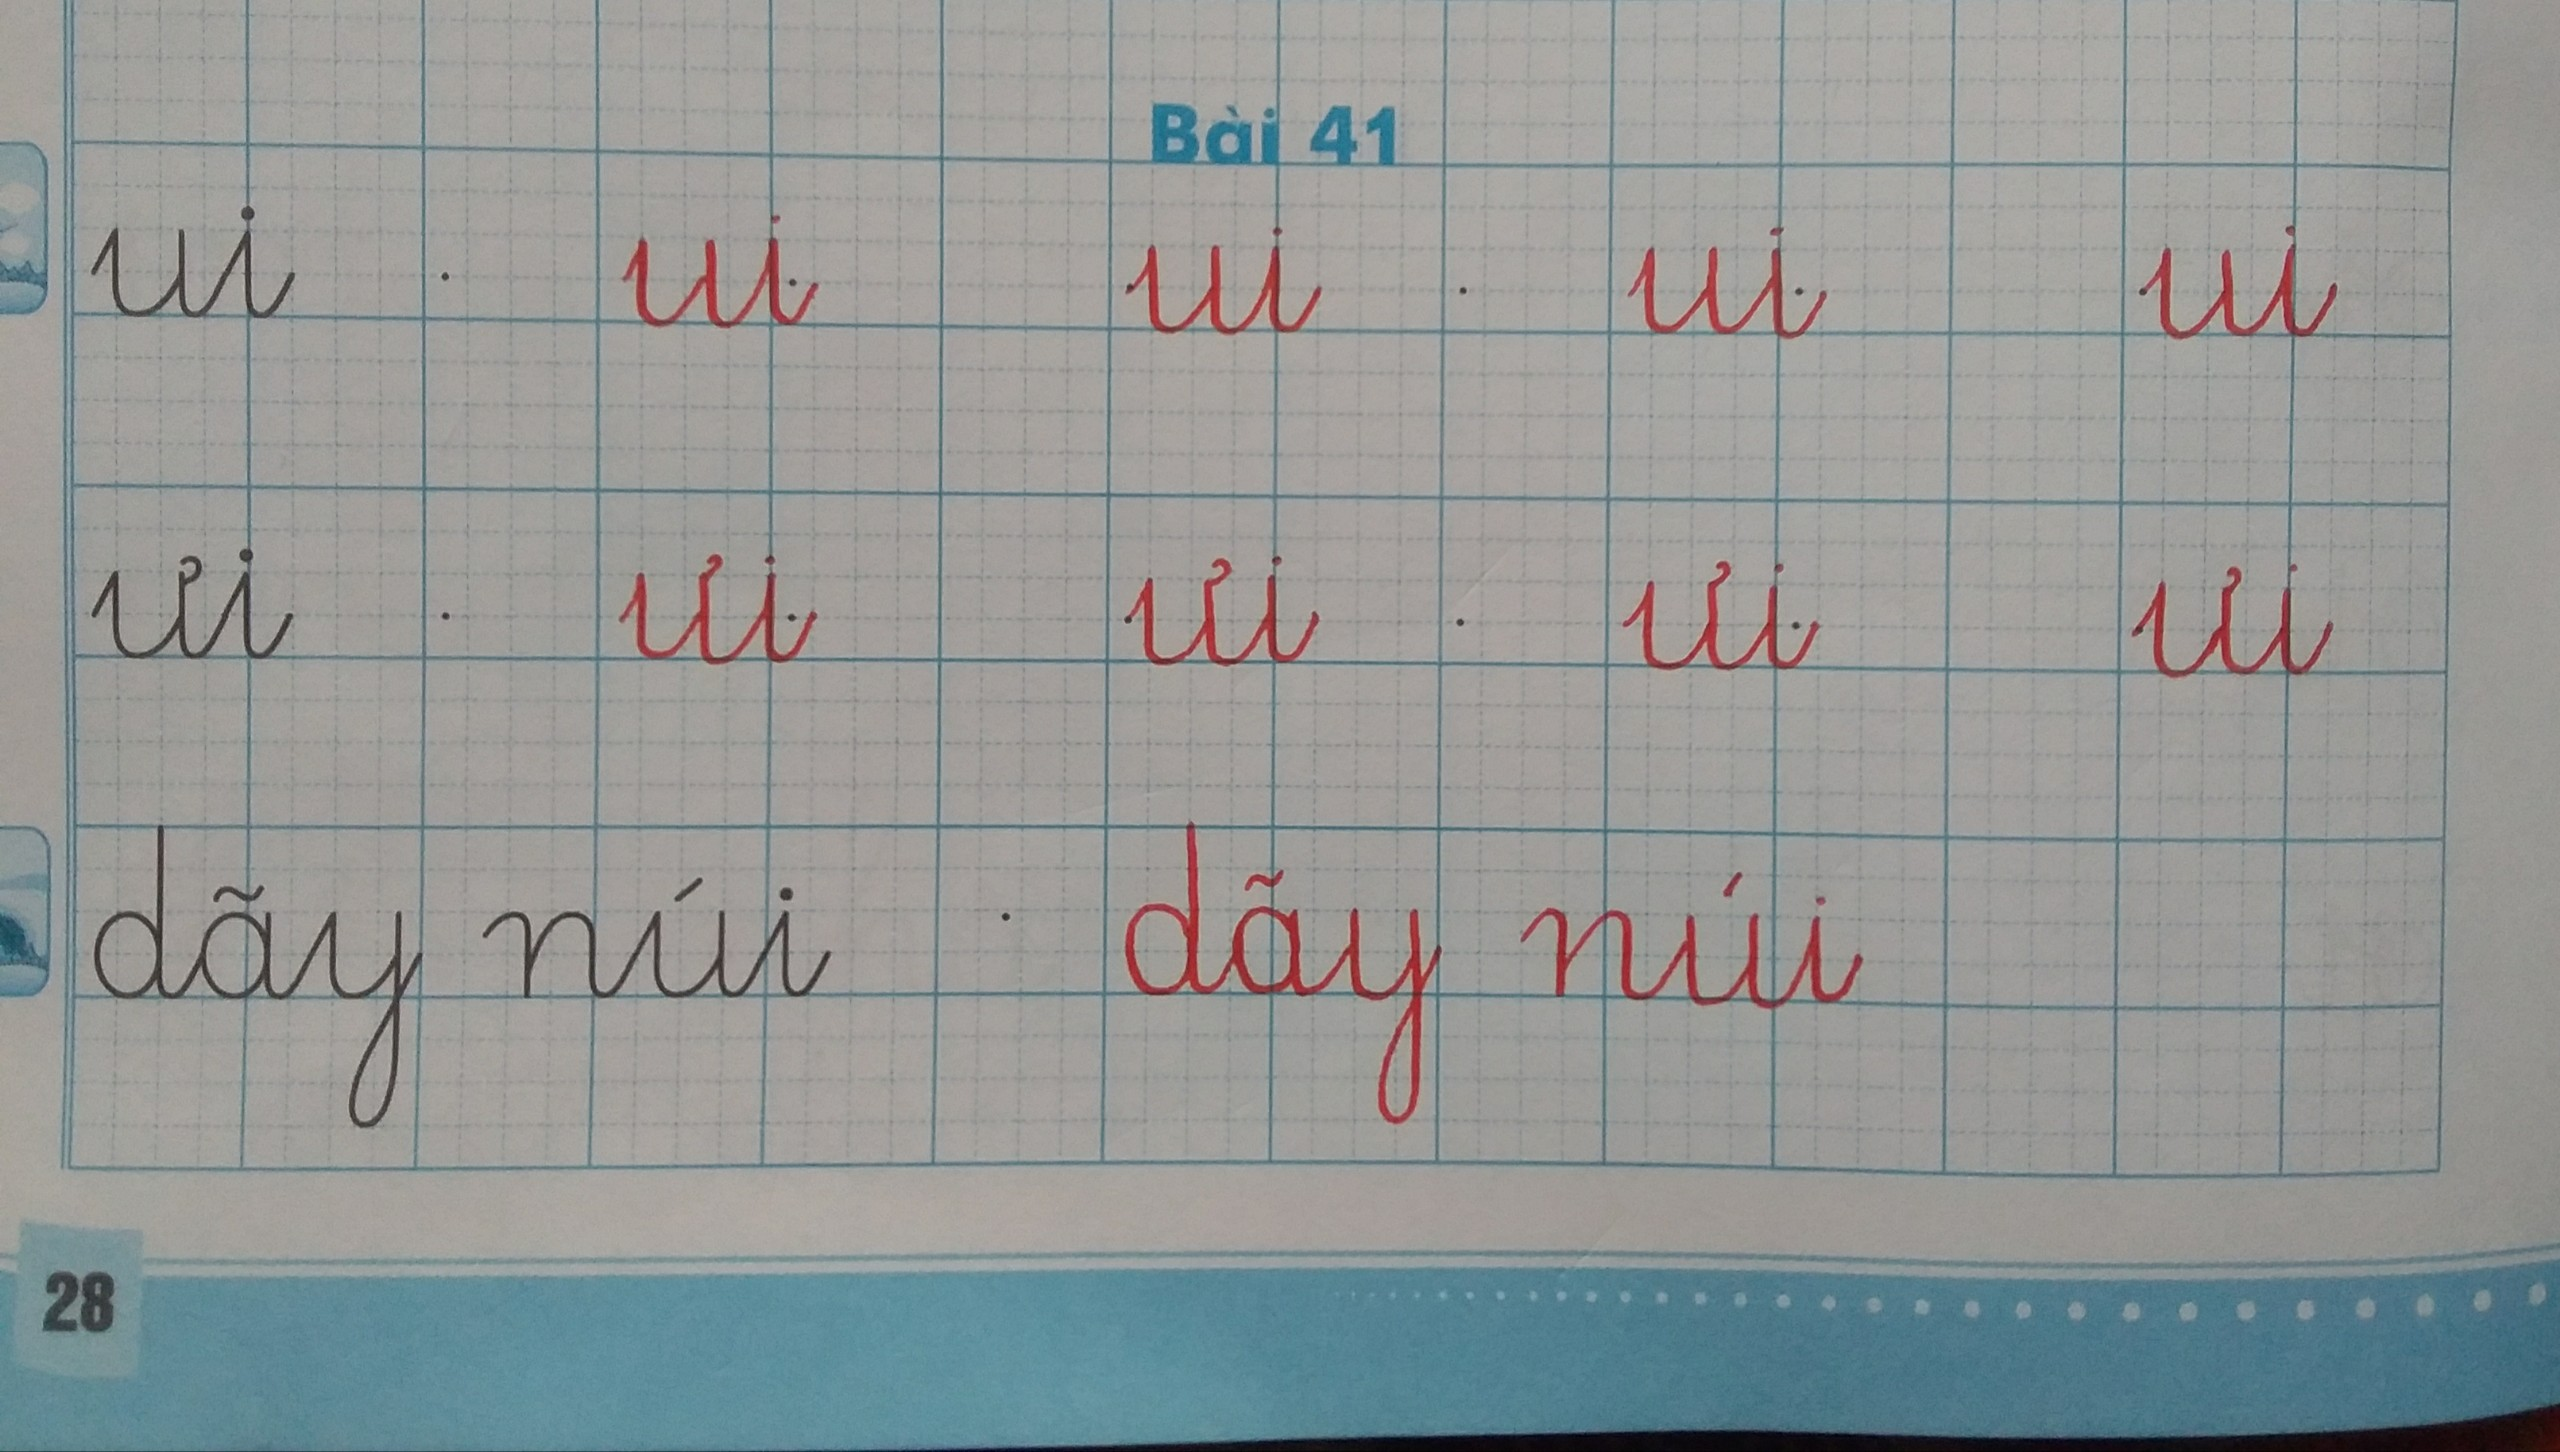 Bài 41
ui ui ui ui ui
ưi ưi ưi ưi ưi
dãy núi dãy núi
28